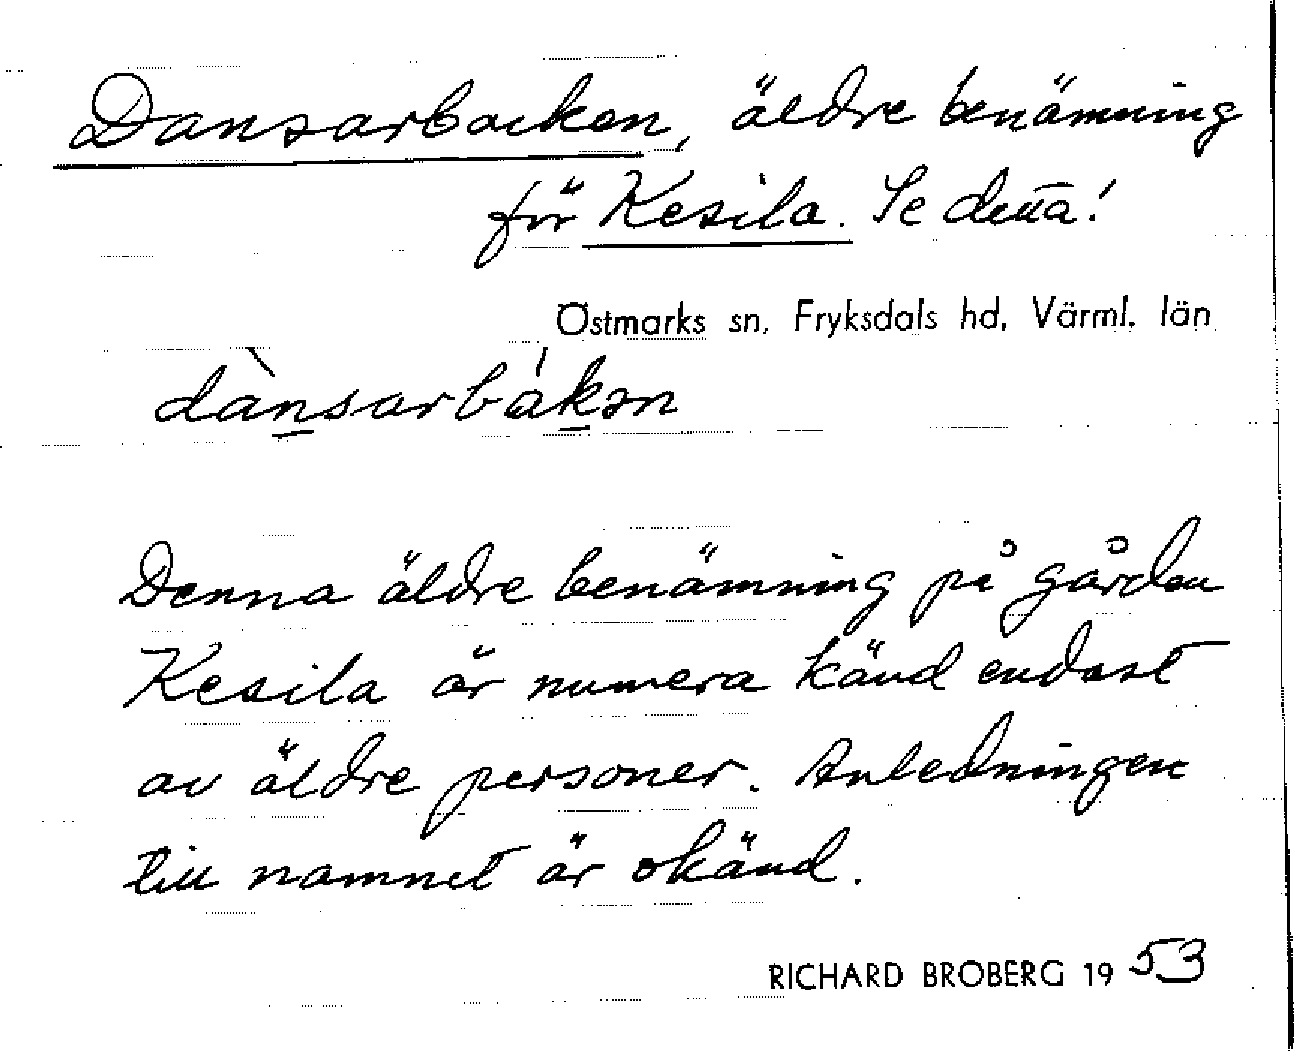 Dansarbacken, äldre benämning
för Kesila. Se detta!
Östmarks sn, Fryksdals hd, Värml. län
dànsarbákən
Denna äldre benämning på gården
Kesila är numera känd endast
av äldre personer. Anledningen
till namnet är okänd.
RICHARD BROBERG 1953